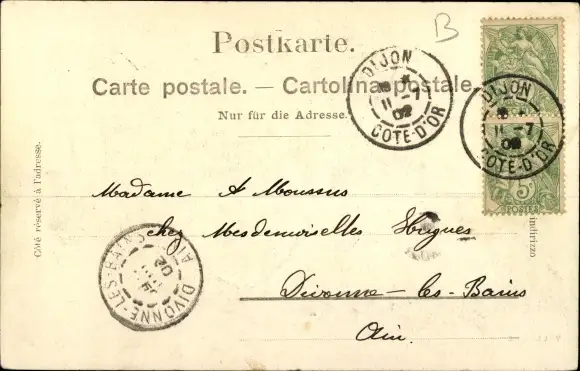 B
Postkarte.
Carte postale. — Cartolina postale.
Nur für die Adresse.
Côté réservé à l'adresse.
DIJON
11 -7
02
COTE-D'OR
DIJON
11 -7
02
COTE-D'OR
5
POSTES
Madame A Moussus
chez Mesdemoiselles Hugues
Divonne-les-Bains
Ain.
DIVONNE-LES-BAINS
AIN
02
indirizzo